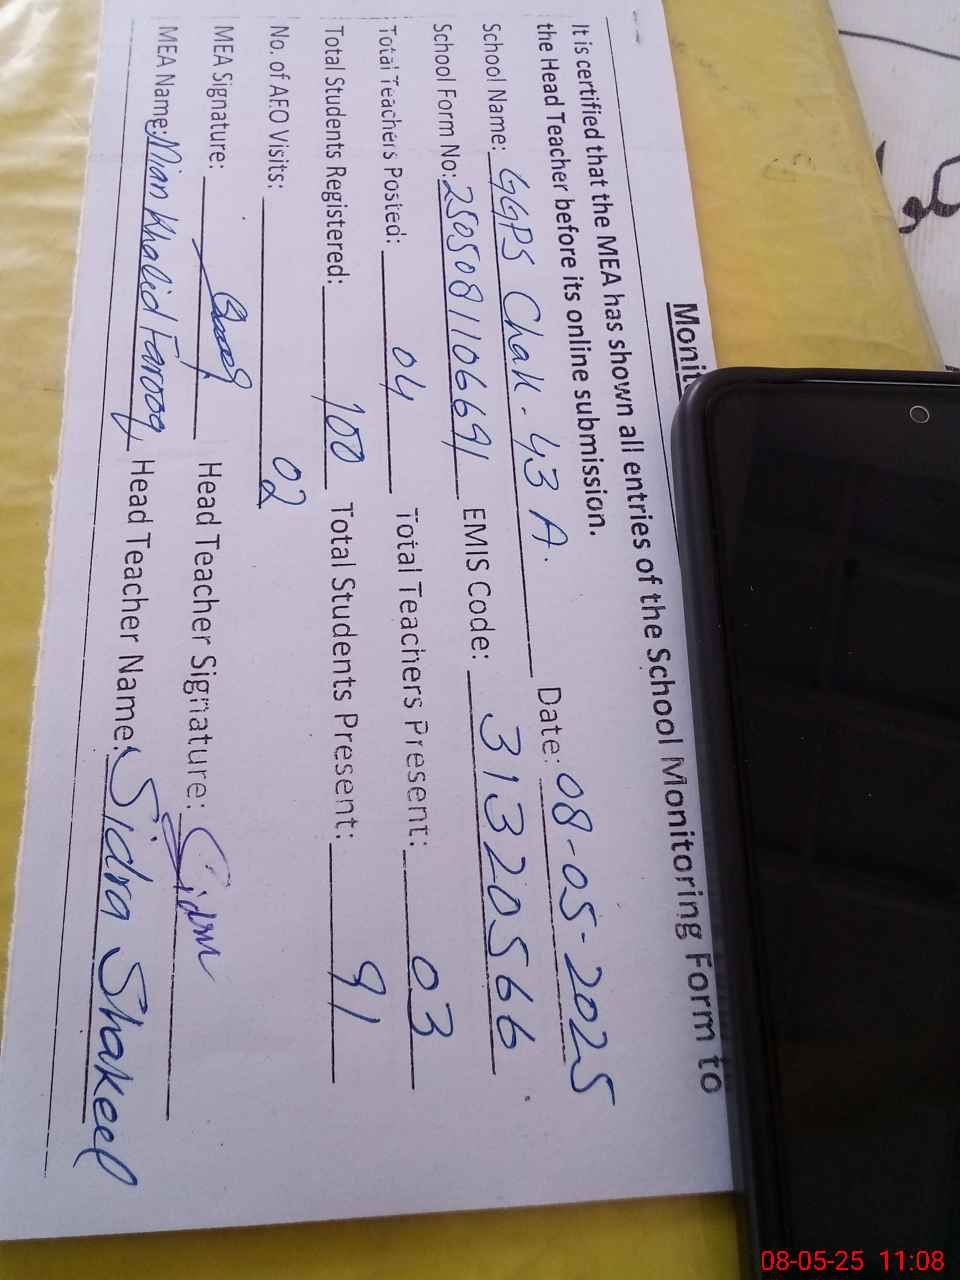 Monit
It is certified that the MEA has shown all entries of the School Monitoring Form to
the Head Teacher before its online submission.
School Name: GGPS Chak-43 A. Date: 08-05-2025
School Form No: 2505081106691 EMIS Code: 31320566
Total Teachers Posted: 04 Total Teachers Present: 03
Total Students Registered: 100 Total Students Present: 91
No. of AEO Visits: 02
MEA Signature: Head Teacher Signature: Sidra
MEA Name: Mian Khalid Farooq Head Teacher Name: Sidra Shakeel
08-05-25 11:08